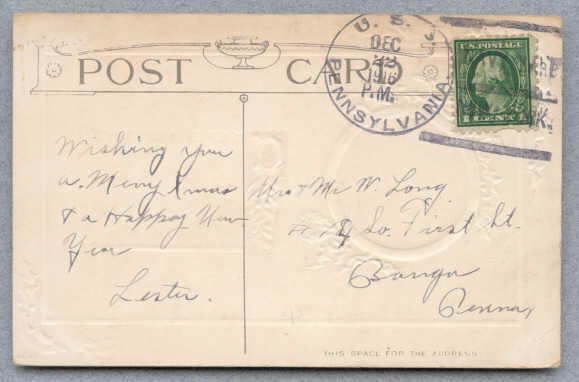 POST CARD
U. S.
DEC
22
1916
P.M.
PENNSYLVANIA
U.S. POSTAGE
1 CENT 1
Wishing you
a Merry Xmas
& a Happy New
Year
Lester.
Mrs & Mr W. Long
So. First St.
Bangor
Penna,
THIS SPACE FOR THE ADDRESS